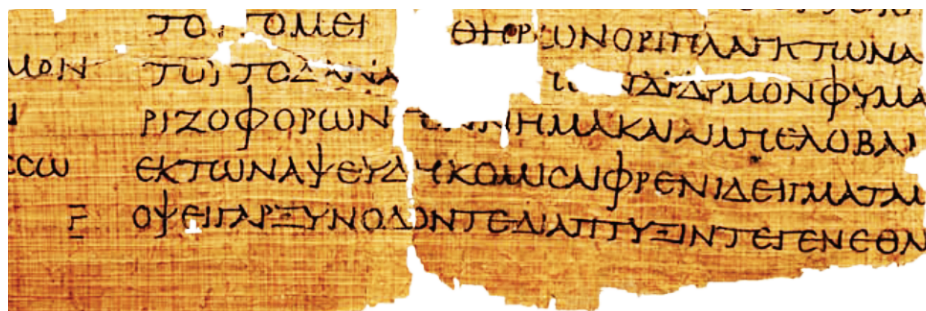 ΤΟ ΤΟΜΕ ΘΗΡ ΩΝΟΡΙΠΛΑΓΚΤΩΝΑ
ΜΟΝ ΤΟΥΤΟΔΑΝΑ ΝΔΙΔΥΜΟΝΦΥΜΑ
Ν ΡΙΖΟΦΟΡΩΝ ΓΕΝΝΗΜΑΚΑΙΑΜΠΕΛΟΒΑΜ
ϹϹΩ ΕΚΤΩΝΑΨΕΥΔΗΚΟΜΙϹΑΙΦΡΕΝΙΔΕΙΓΜΑΤΑΜ
Ξ ΟΨΕΙΓΑΡΞΥΝΟΔΟΝΤΕΔΙΑΠΤΥΞΙΝΤΕΓΕΝΕΘΛ